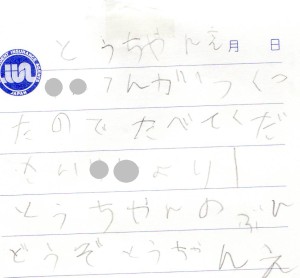 とうちゃんえ 月 日
てんがいつくっ
たのでたべてくだ
さい より
とうちゃんのぶん
どうぞとうちゃんえ
JAPAN